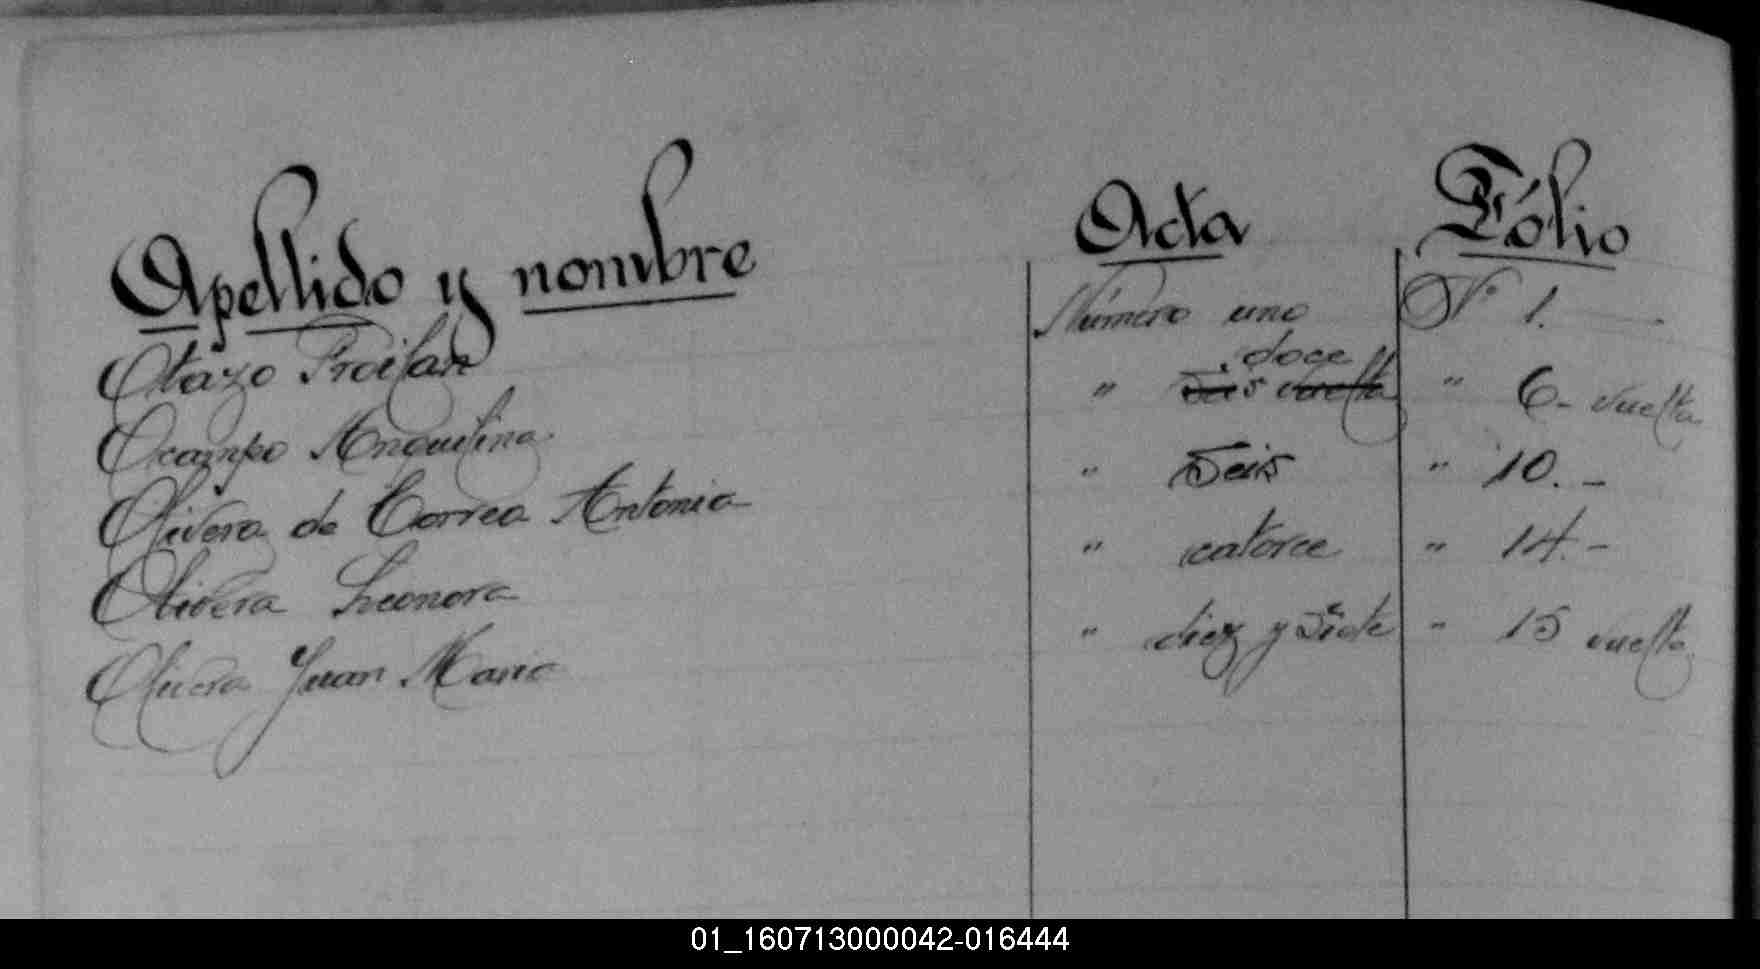 Apellido y nombre Acta Fólio
Otazo Froilan Número uno Nº 1.
doce
Ocampo Anquelina " seis vuelta " 6- vuelta
Olivera de Correa Antonia " Seis " 10.-
Olivera Leonora " catorce " 14.-
Olivera Juan Mario " diez y siete " 15 vuelta
01_160713000042-016444